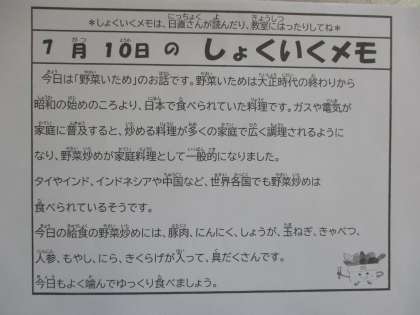 ＊しょくいくメモは、日直さんが読んだり、教室にはったりしてね＊
7月10日の しょくいくメモ
今日は「野菜いため」のお話です。野菜いためは大正時代の終わりから
昭和の始めのころより、日本で食べられていた料理です。ガスや電気が
家庭に普及すると、炒める料理が多くの家庭で広く調理されるように
なり、野菜炒めが家庭料理として一般的になりました。
タイやインド、インドネシアや中国など、世界各国でも野菜炒めは
食べられているそうです。
今日の給食の野菜炒めには、豚肉、にんにく、しょうが、玉ねぎ、きゃべつ、
人参、もやし、にら、きくらげが入って、具だくさんです。
今日もよく噛んでゆっくり食べましょう。